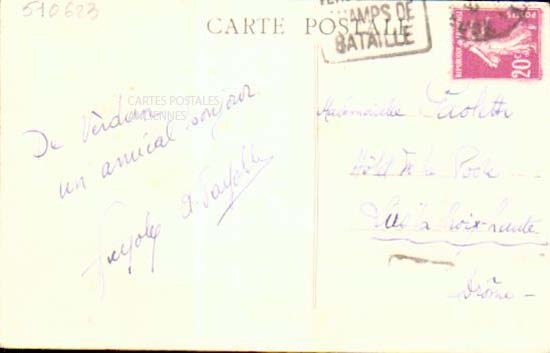 510623
CARTE POSTALE
CHAMPS DE
BATAILLE
REPUBLIQUE
20c
POSTES
CARTES POSTALES
ANCIENNES
De Verdun
un amical bonjour
Mademoiselle
Hôtel de la Poste
Lus la Croix-haute
Drôme